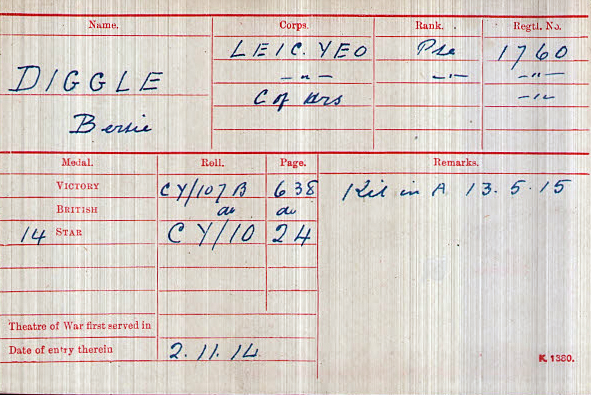 Name. Corps. Rank. Regtl. No.
LEIC. YEO Pte 1760
DIGGLE — " — — " — — " —
C of Hrs — " —
Bertie
Medal. Roll. Page. Remarks.
VICTORY CY/107 B 638 Kil in A 13.5.15
BRITISH do do
14 STAR CY/10 24
Theatre of War first served in
Date of entry therein 2.11.14
K. 1380.